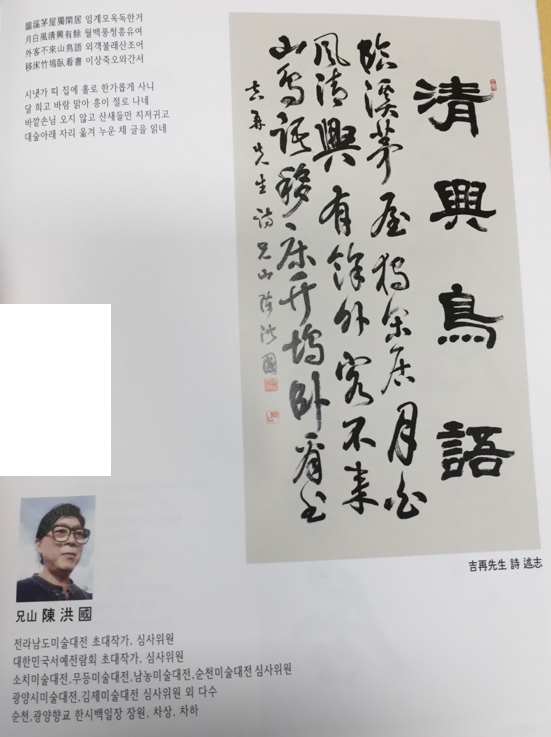 臨溪茅屋獨閑居 임계모옥독한거
月白風淸興有餘 월백풍청흥유여
外客不來山鳥語 외객불래산조어
移床竹塢臥看書 이상죽오와간서
시냇가 띠 집에 홀로 한가롭게 사니
달 희고 바람 맑아 흥이 절로 나네
바깥손님 오지 않고 산새들만 지저귀고
대숲아래 자리 옮겨 누운 채 글을 읽네
清興鳥語
臨溪茅屋獨閑居月白
風清興有餘外客不來
山鳥語移床竹塢臥看書
吉再先生詩 兄山 陳洪國
吉再先生 詩 述志
兄山 陳洪國
전라남도미술대전 초대작가, 심사위원
대한민국서예전람회 초대작가, 심사위원
소치미술대전,무등미술대전,남농미술대전,순천미술대전 심사위원
광양시미술대전,김제미술대전 심사위원 외 다수
순천,광양향교 한시백일장 장원, 차상, 차하